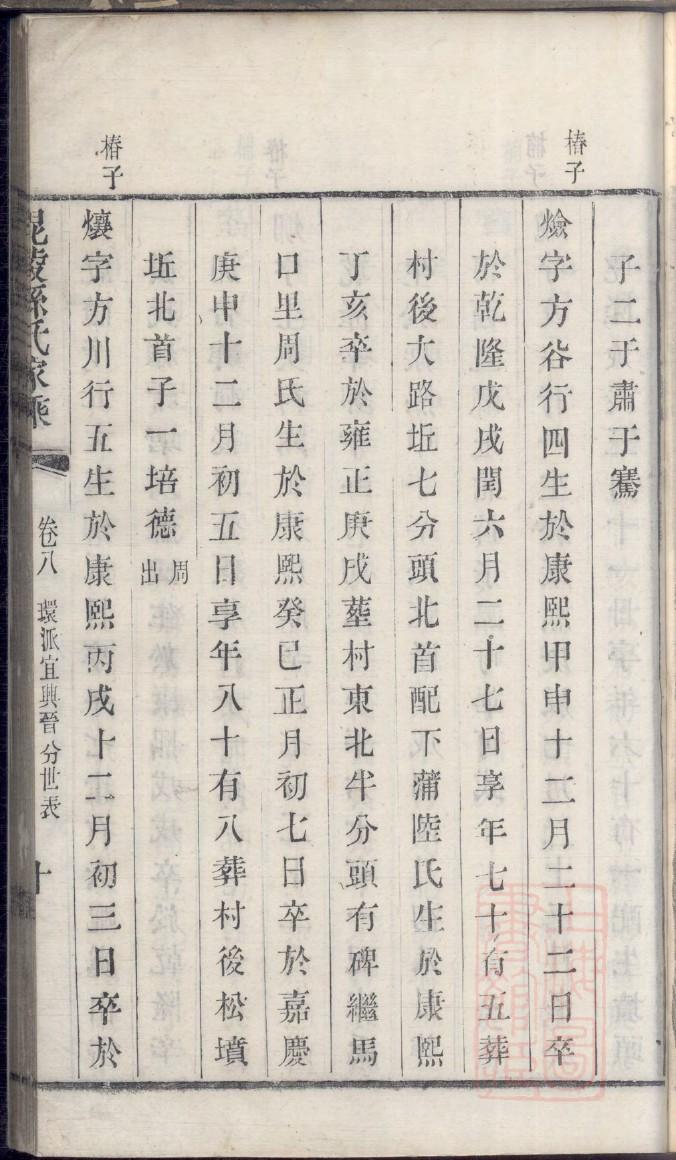 子二于肅于騫
椿子
爓字方谷行四生於康熙甲申十二月二十二日卒
於乾隆戊戌閏六月二十七日享年七十有五葬
村後大路坵七分頭北首配下蒲陸氏生於康熙
丁亥卒於雍正庚戌塟村東北半分頭有碑繼馬
口里周氏生於康熙癸巳正月初七日卒於嘉慶
庚申十二月初五日享年八十有八葬村後松墳
坵北首子一培德周出
椿子
爙字方川行五生於康熙丙戌十二月初三日卒於
毘陵孫氏家乘
卷八 環派宜興晉分世表
十